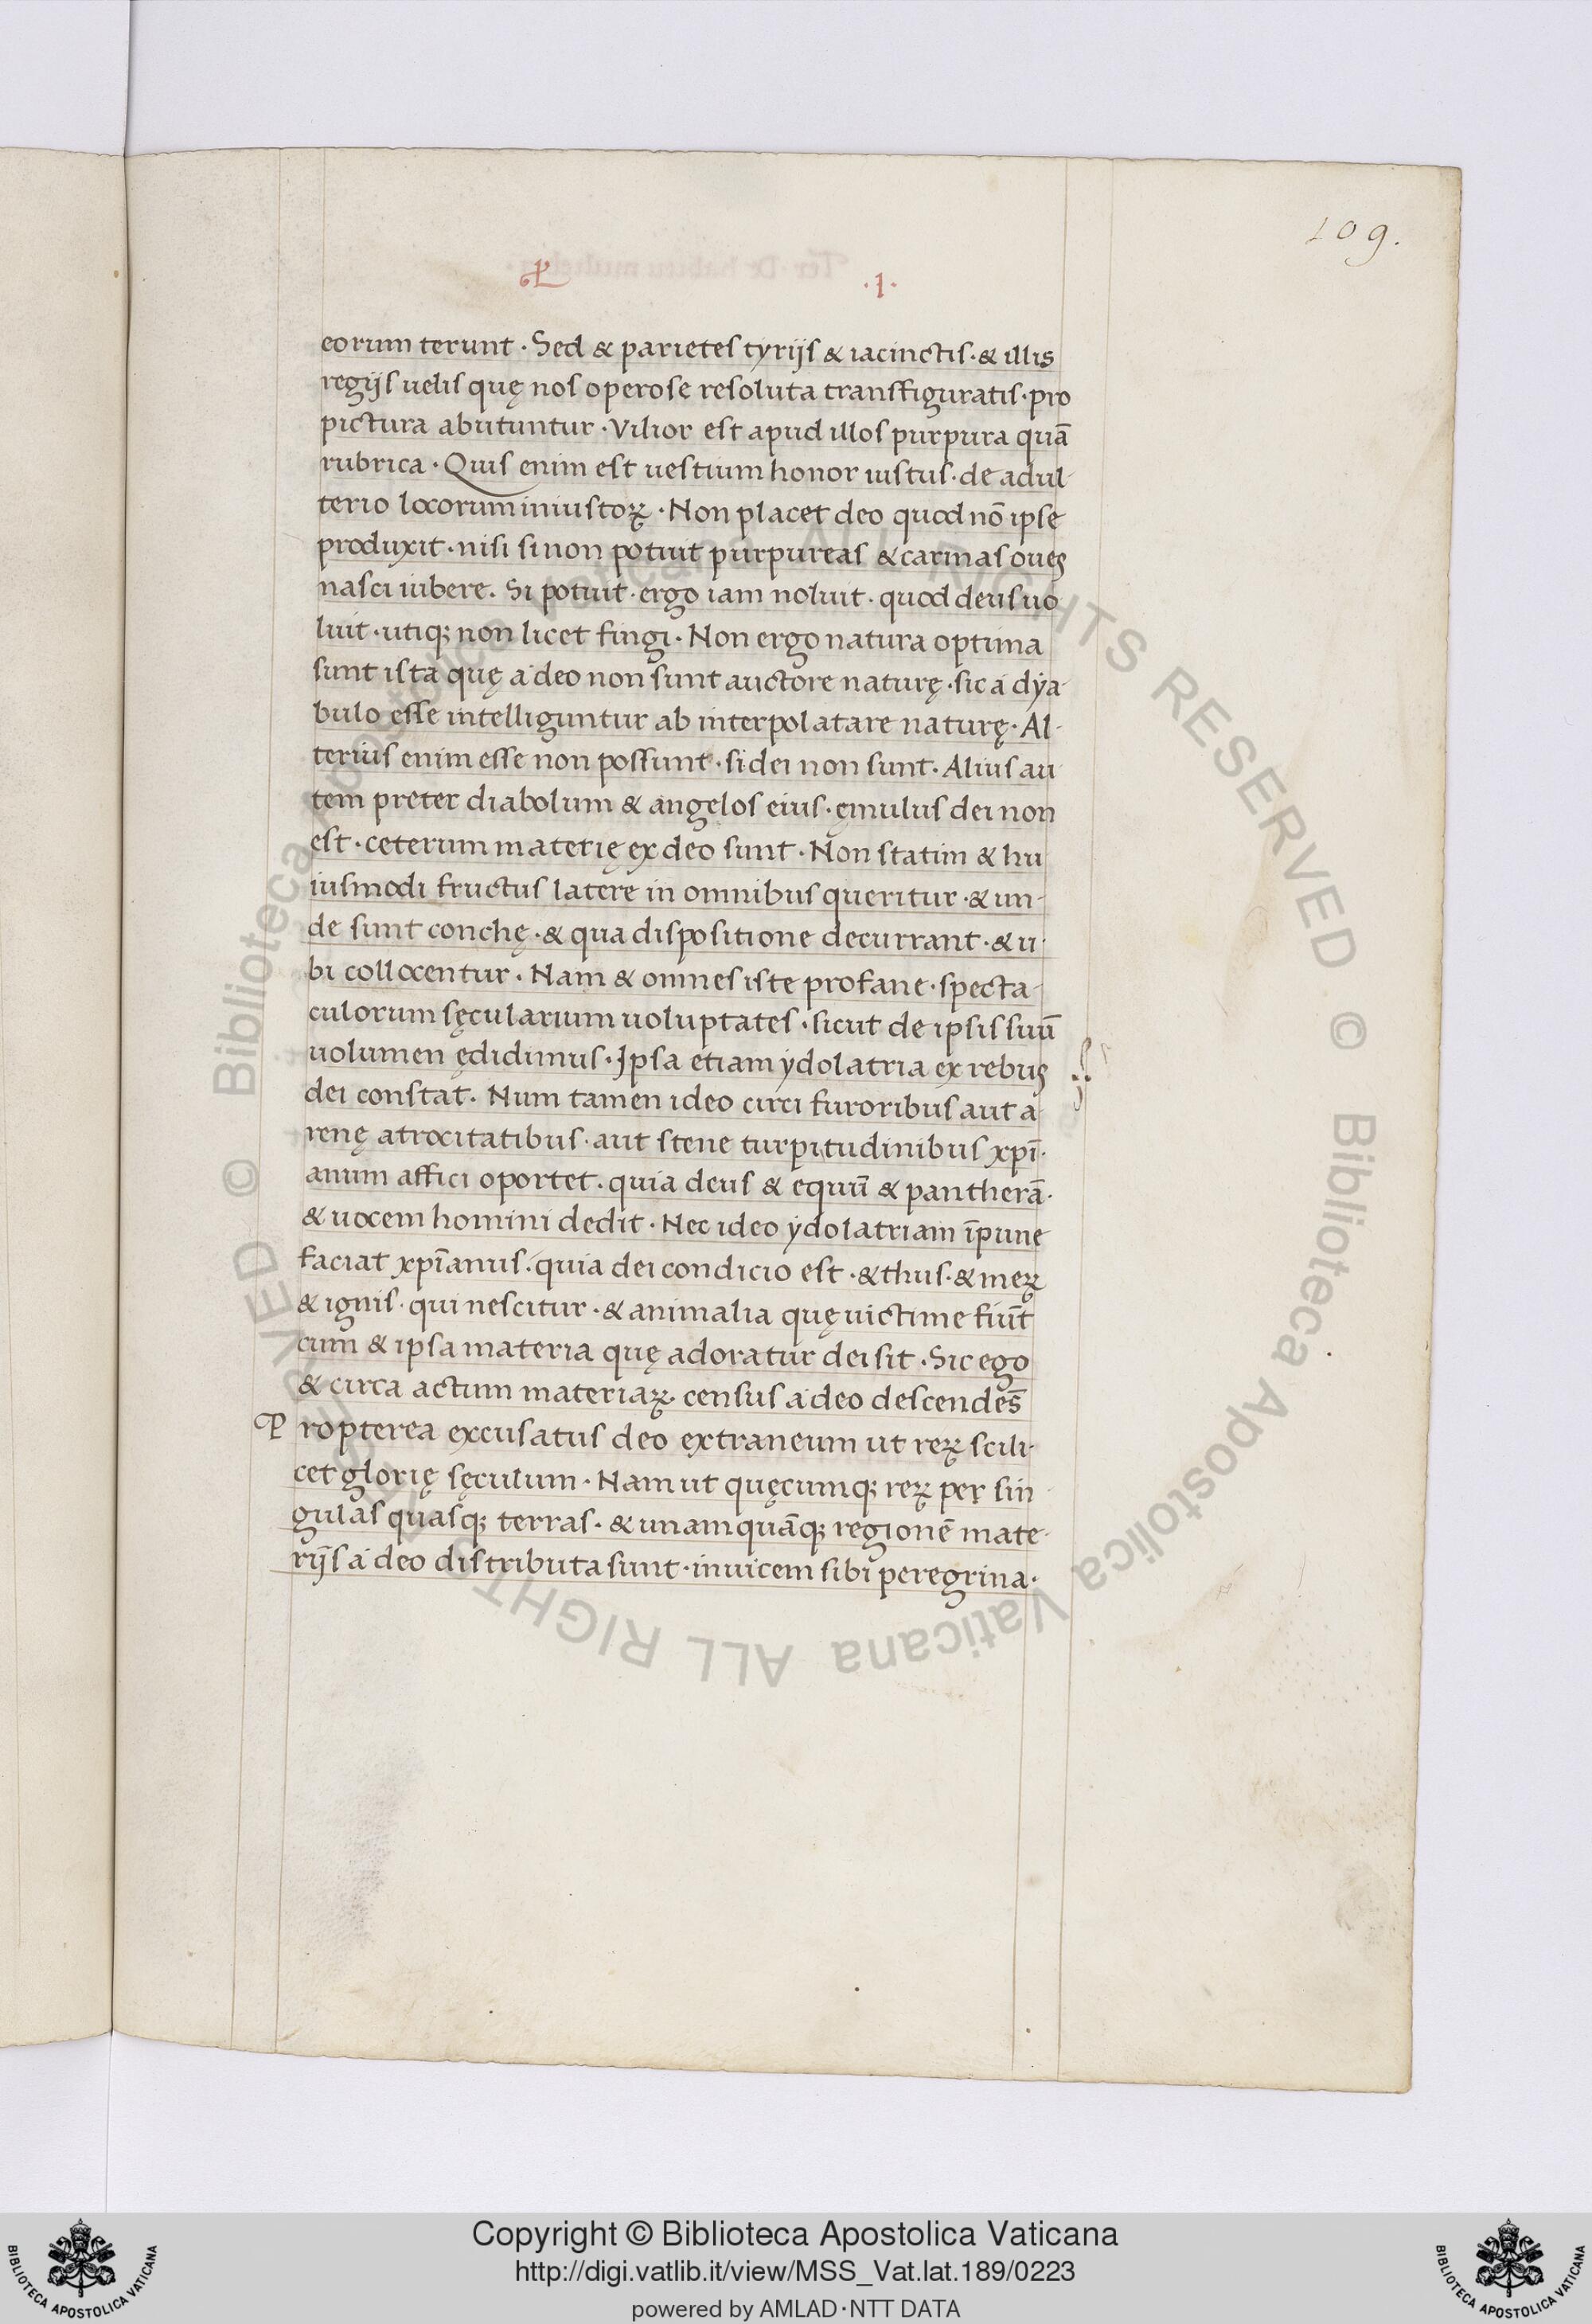 109.
.1.
eorum terunt · Sed & parietes tyrijs & iacinctis · & illis
regijs uelis quę nos operose resoluta transfiguratis · pro
pictura abutuntur · Vilior est apud illos purpura quā
rubrica · Quis enim est uestium honor iustus · de adul-
terio locorum iniustoꝝ · Non placet deo quod nō ipse
produxit · nisi si non potuit purpureas & carinas oues
nasci iubere. Si potuit · ergo iam noluit · quod deus uo
luit · utiqꝫ non licet fingi · Non ergo natura optima
sunt ista quę a deo non sunt auctore naturę · sic a dya-
bulo esse intelliguntur ab interpolatare naturę · Al-
terius enim esse non possunt · si dei non sunt · Alius au
tem preter diabolum & angelos eius · ęmulus dei non
est · ceterum materię ex deo sunt · Non statim & hu
iusmodi fructus latere in omnibus queritur · & un-
de sunt conchę · & qua dispositione decurrant · & u-
bi collocentur · Nam & omnes iste profane · specta-
culorum sęcularium uoluptates · sicut de ipsis suū
uolumen ędidimus · Ipsa etiam ydolatria ex rebus
dei constat. Num tamen ideo circi furoribus aut a
renę atrocitatibus · aut stene turpitudinibus xpī-
anum affici oportet · quia deus & equū & pantherā ·
& uocem homini dedit · Nec ideo ydolatriam īpune
faciat xpīanus · quia dei condicio est · & thus · & meꝝ
& ignis · qui nescitur · & animalia quę uictime fiūt
cum & ipsa materia quę adoratur dei sit · Sic ego
& circa actum materiaꝝ · census a deo descendēs
Propterea excusatus deo extraneum ut reꝝ scili-
cet glorię sęculum · Nam ut quęcumqꝫ reꝝ per sin-
gulas quasqꝫ terras · & unamquāqꝫ regionē mate-
rijs a deo distributa sunt · inuicem sibi peregrina ·
© Biblioteca Apostolica Vaticana ALL RIGHTS RESERVED
© Biblioteca Apostolica Vaticana ALL RIGHTS RESERVED
Copyright © Biblioteca Apostolica Vaticana
http://digi.vatlib.it/view/MSS_Vat.lat.189/0223
powered by AMLAD·NTT DATA
BIBLIOTECA APOSTOLICA VATICANA
BIBLIOTECA APOSTOLICA VATICANA